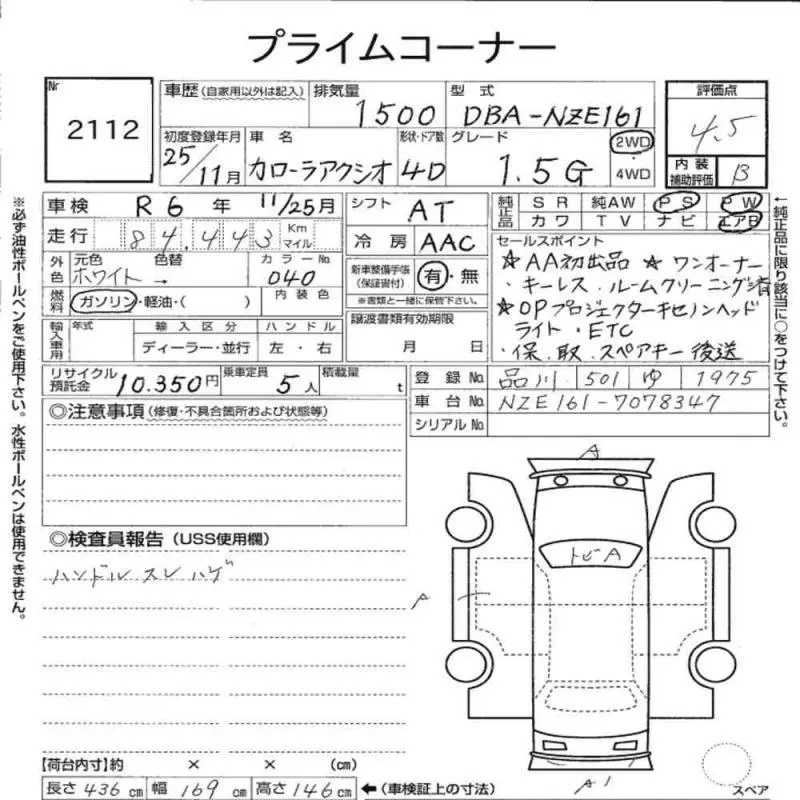 プライムコーナー
Nr 2112
車歴 (自家用以外は記入) 排気量 1500 型式 DBA-NZE161
初度登録年月 25/11月 車名 カローラアクシオ 形状・ドア数 4D グレード 1.5G 2WD 4WD
評価点 4.5
内装補助評価 B
車検 R6年 11/25月 シフト AT
走行 84,443 Km マイル 冷房 AAC
外色 元色 ホワイト 色替 → カラーNo. 040
燃料 ガソリン・軽油・( ) 内装色
新車整備手帳 (保証書付) 有・無
※書類と一緒に保管下さい。
輸入車用 年式 輸入区分 ディーラー・並行 ハンドル 左・右
譲渡書類有効期限 月 日
リサイクル預託金 10.350円 乗車定員 5人 積載量 t
純正品 SR 純AW PS PW
カワ TV ナビ エアB
セールスポイント
★AA初出品 ★ワンオーナー
・キーレス・ルームクリーニング済
★OPプロジェクターキセノンヘッド
ライト・ETC
・保.取.スペアキー後送
登録No. 品川 501 ゆ 1975
車台No. NZE161-7078347
シリアルNo.
◎注意事項 (修復・不具合箇所および状態等)
◎検査員報告 (USS使用欄)
ハンドルスレハゲ
A
トビA
A
A1
スペア
【荷台内寸】約 × × (cm)
長さ 436 cm 幅 169 cm 高さ 146 cm ←(車検証上の寸法)
※必ず油性ボールペンをご使用下さい。水性ボールペンは使用できません。
←純正品に限り該当に○をつけて下さい。